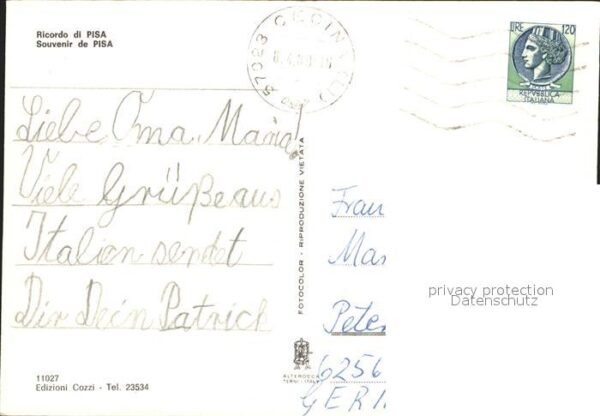 Ricordo di PISA
Souvenir de PISA
57023 CECINA
LIRE 120
REPVBBLICA
ITALIANA
Liebe Oma Maria!
Viele Grüße aus
Italien sendet
Dir Dein Patrick
FOTOCOLOR - RIPRODUZIONE VIETATA
Frau
Mar
Peter
6256
GERM
privacy protection
Datenschutz
11027
Edizioni Cozzi - Tel. 23534
ALTEROCCA
TERNI - ITALY